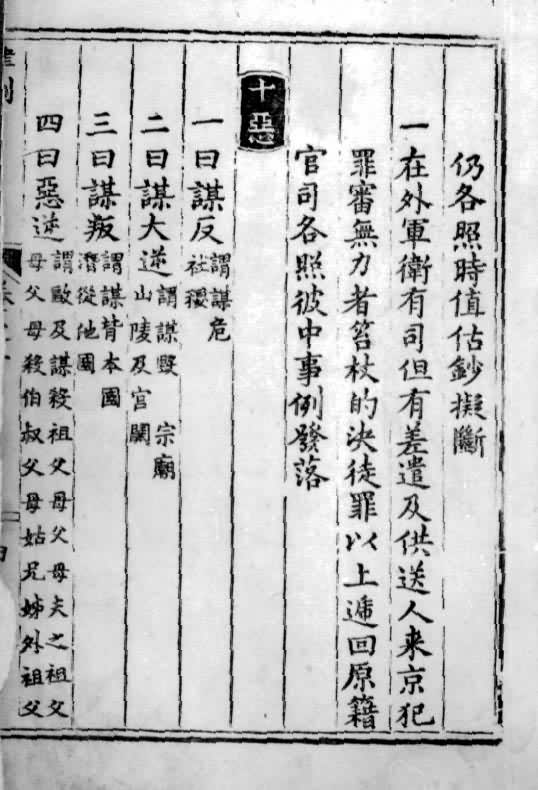 仍各照時值估鈔擬斷
一在外軍衛有司但有差遣及供送人来京犯
罪審無力者笞杖的決徒罪以上遞回原籍
官司各照彼中事例發落
十惡
一曰謀反謂謀危
社稷
二曰謀大逆謂謀毀宗廟
山陵及宮闕
三曰謀叛謂謀背本國
潛從他國
四曰惡逆謂毆及謀殺祖父母父母夫之祖父
母父母殺伯叔父母姑兄姊外祖父